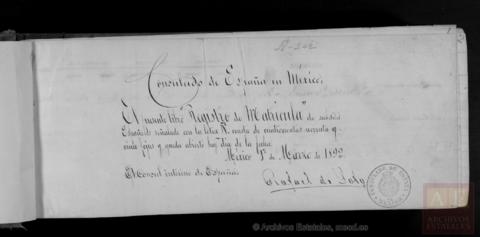 A-342
Consulado de España en México.
El presente libro "Registro de Matrícula" de súbditos
Españoles señalado con la letra A. consta de cuatrocientas
fojas y queda abierto hoy día de la fecha.
México 1º de Marzo de 1892.
El Consul interino de España.
Rafael de
ARCHIVOS
ESTATALES
© Archivos Estatales, mecd.es